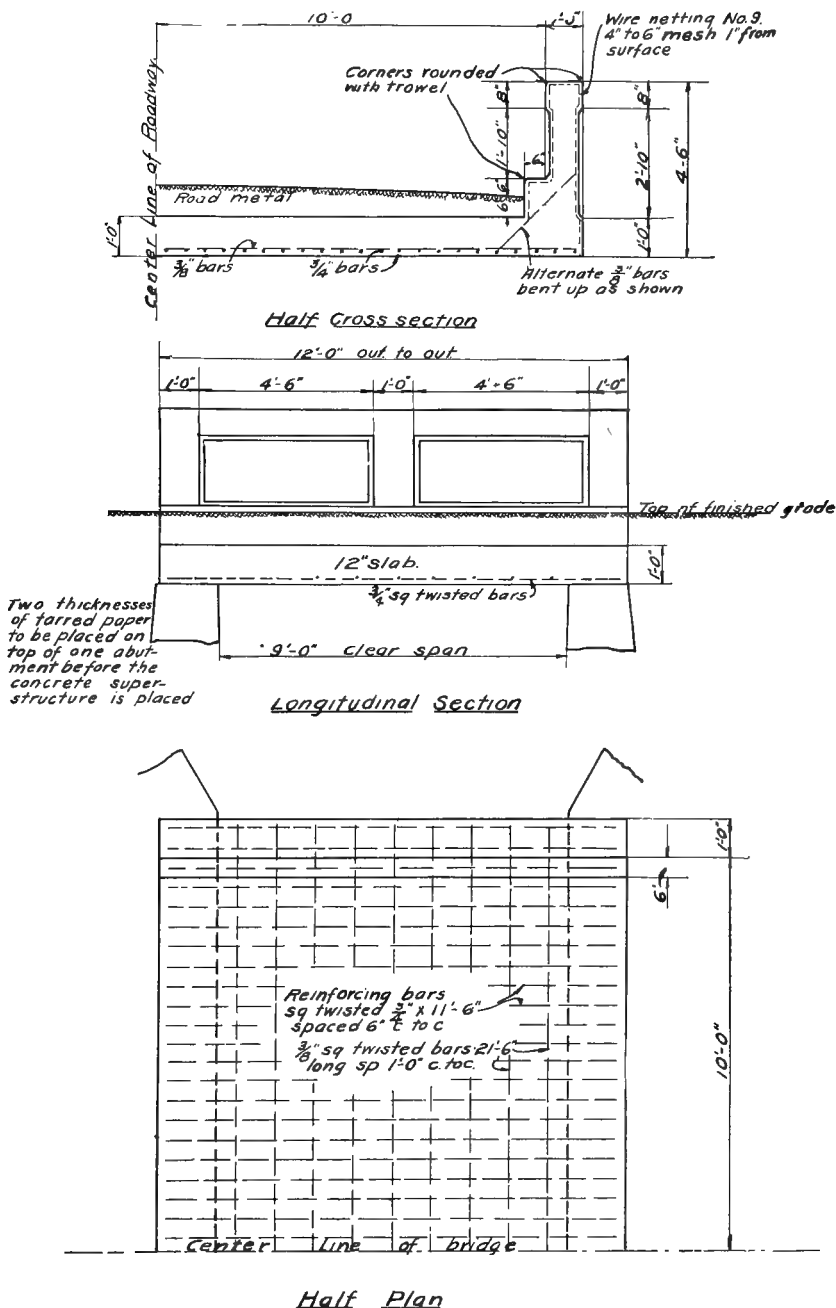 10'-0
1'-0"
Wire netting No. 9.
4" to 6" mesh 1" from
surface
Corners rounded
with trowel
Center Line of Roadway.
8"
1'-10"
6"
6"
6"
8"
2'-10"
1'-0"
4'-6"
Road metal
1'-0"
3/8" bars
3/4" bars
Alternate 3/8" bars
bent up as shown
Half Cross section
12'-0" out to out
1'-0"
4'-6"
1'-0"
4'-6"
1'-0"
Top of finished grade
12" slab.
1'-0"
3/4" sq twisted bars
Two thicknesses
of tarred paper
to be placed on
top of one abut-
ment before the
concrete super-
structure is placed
9'-0" clear span
Longitudinal Section
1'-0"
6"
Reinforcing bars
sq twisted 3/4" x 11'-6"
spaced 6" c to c
3/8" sq twisted bars 21'-6"
long sp 1'-0" c. to c.
10'-0"
Center Line of bridge
Half Plan